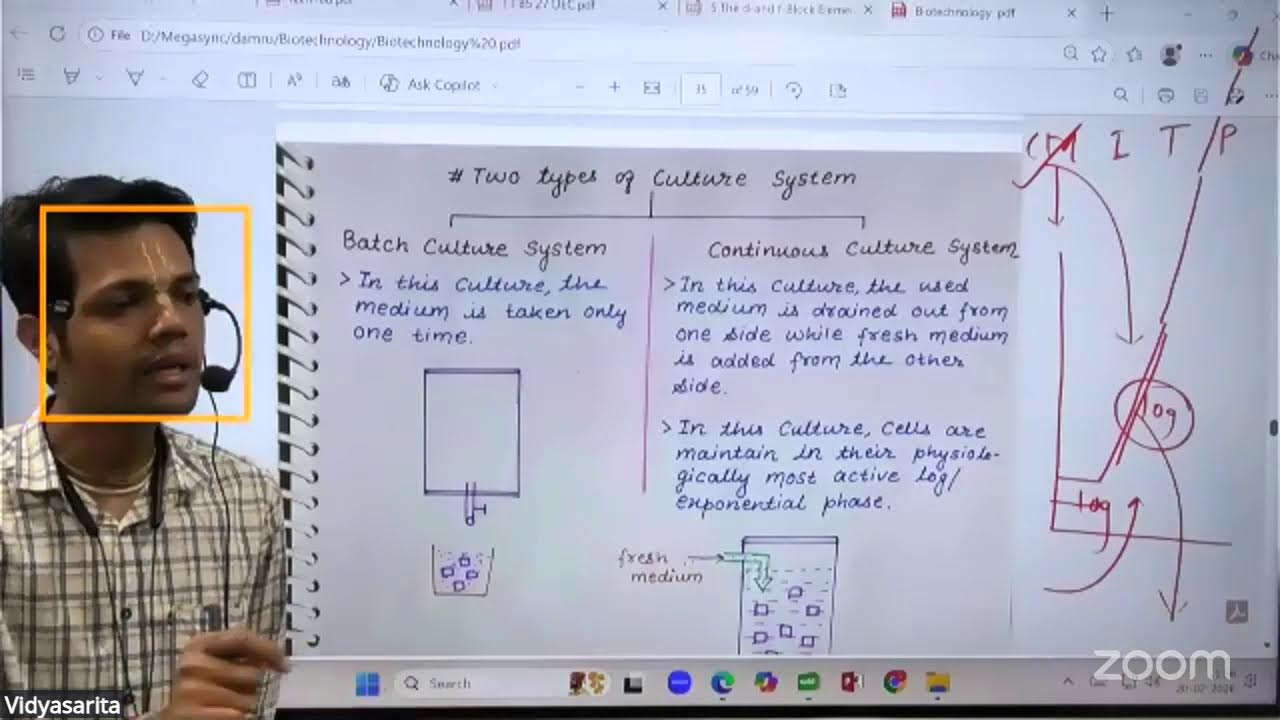 TT BS 27 DEC pdf
Biotechnology pdf
File D:/Megasync/damru/Biotechnology/Biotechnology%20.pdf
Ask Copilot
35 of 59
# Two types of Culture System
Batch Culture System
> In this Culture, the
medium is taken only
one time.
Continuous Culture System
> In this Culture, the used
medium is drained out from
one side while fresh medium
is added from the other
side.
> In this Culture, Cells are
maintain in their physiolo-
gically most active log/
exponential phase.
fresh
medium
I T P
log
log
zoom
Search
Vidyasarita